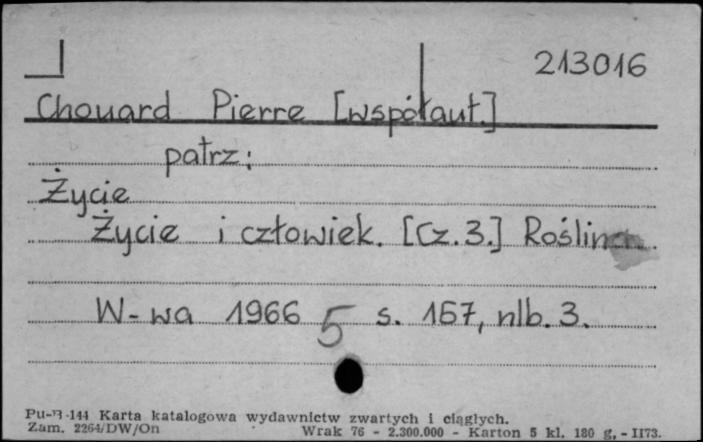 213016
Chouard Pierre [współaut.]
patrz:
Życie
Życie i człowiek. [Cz.3.] Roślina.
W-wa 1966 5 s. 167, nlb. 3.
Pu-B-144 Karta katalogowa wydawnictw zwartych i ciągłych.
Zam. 2264/DW/On Wrak 76 - 2.300.000 - Karton 5 kl. 180 g. - II73.